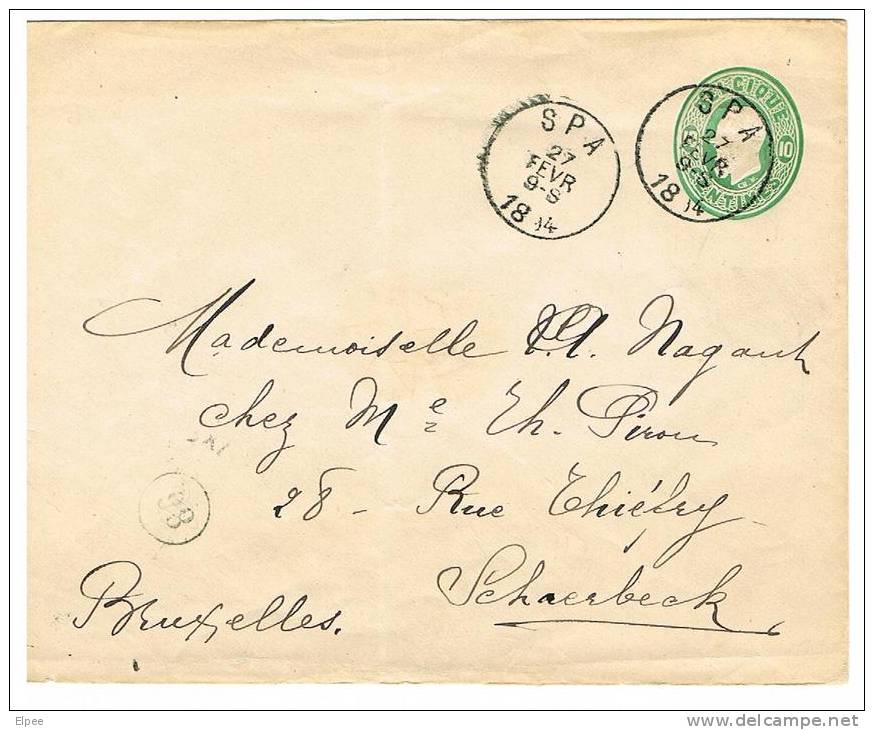 SPA
27
FEVR
9-S
18 94
SPA
27
FEVR
9-S
18 94
GIQUE
10
ENTIMES
Mademoiselle Nagant
chez Me Th. Piron
28 - Rue Thiéfry
Schaerbeek
Bruxelles.
Elpee
www.delcampe.net